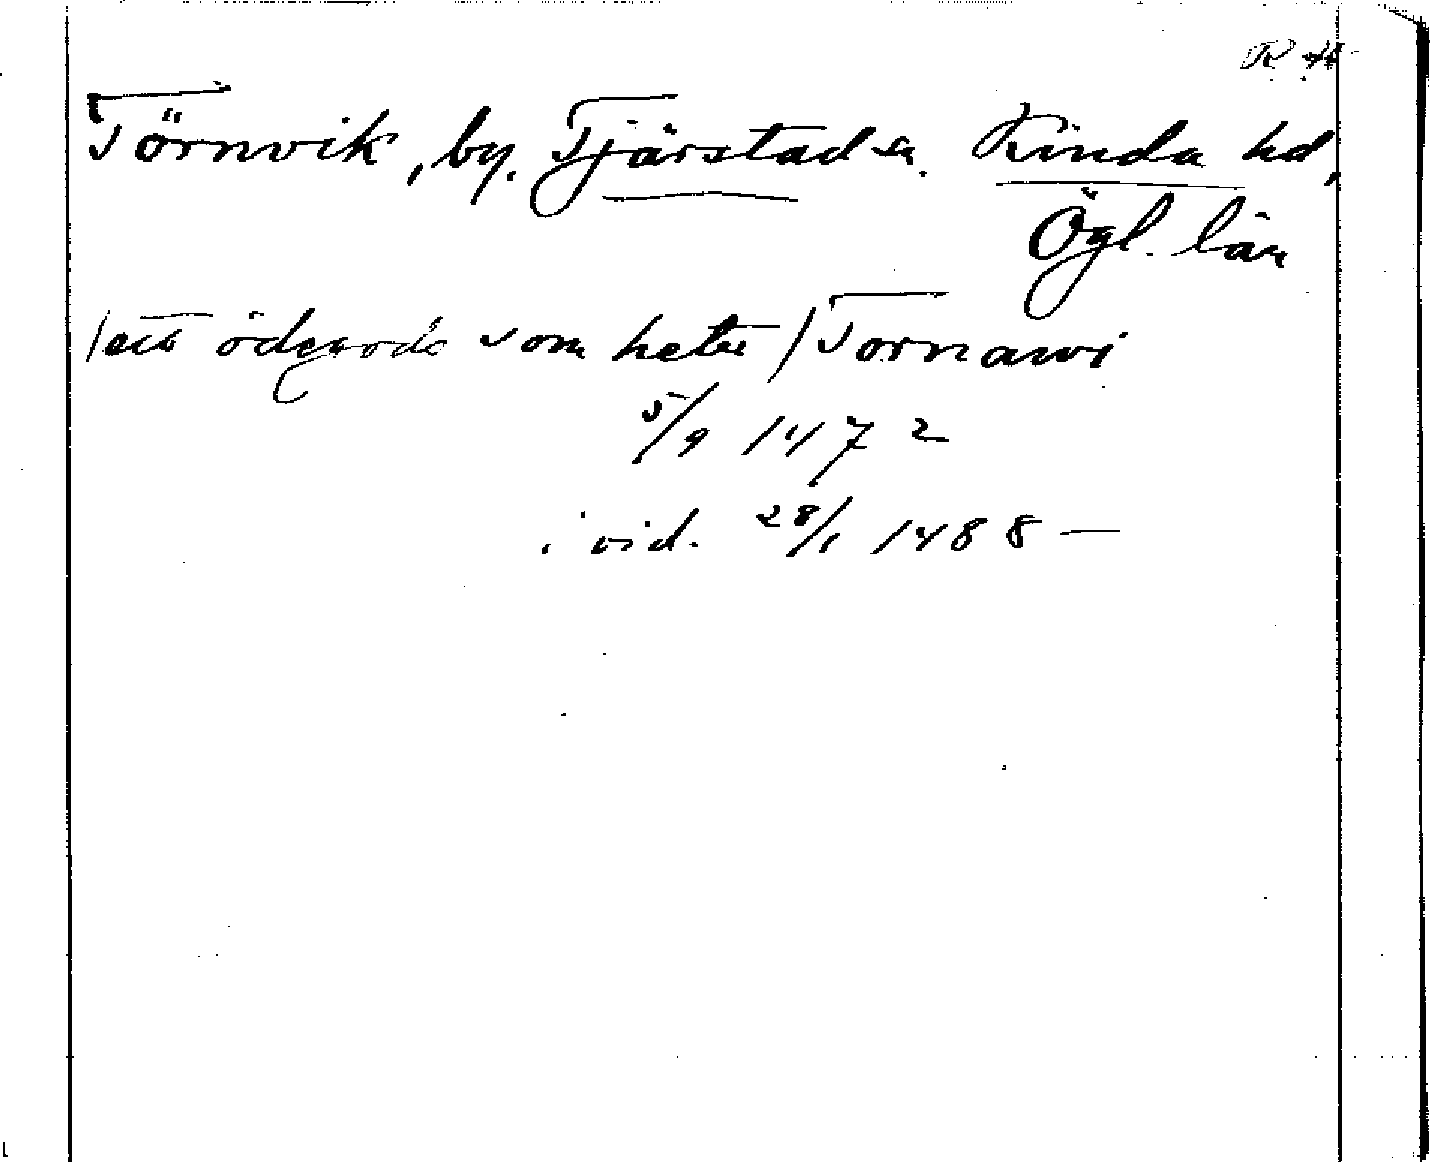 Törnvik, by. Tjärstad sn. Kinda hd,
Ögl. län
/ett ödegods som heter/ Tornawi
5/9 1472
i vid. 28/1 1488 —